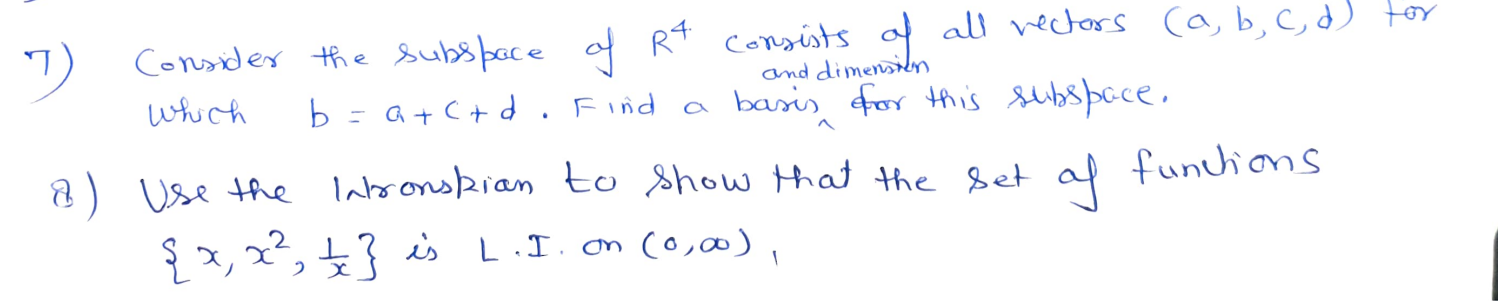 7) Consider the subspace of R⁴ consists of all vectors (a, b, c, d) for
and dimension
which b = a + c + d. Find a basis ^ for this subspace.
8) Use the Wronskian to show that the set of functions
{x, x², 1/x} is L.I. on (0,∞),